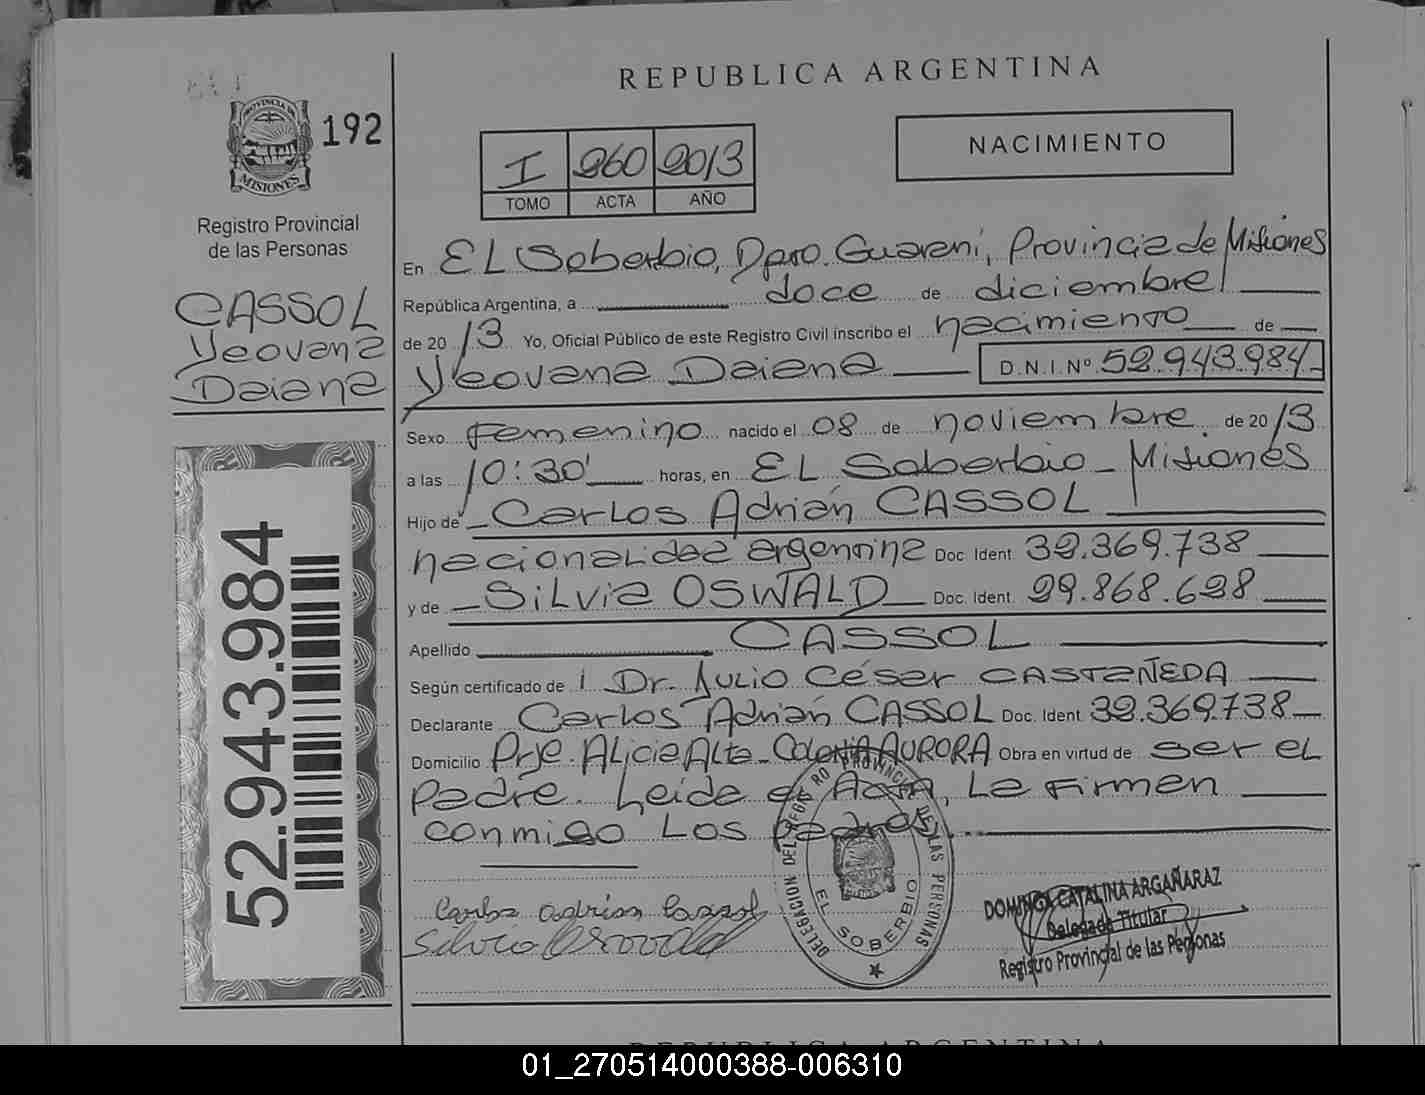 REPUBLICA ARGENTINA
PROVINCIA DE
MISIONES
192
Registro Provincial
de las Personas
CASSOL
Yeovana
Daiana
52.943.984
I 260 2013
TOMO ACTA AÑO
NACIMIENTO
En EL Soberbio, Dpto. Guaraní, Provincia de Misiones
República Argentina, a doce de diciembre
de 2013 Yo, Oficial Público de este Registro Civil inscribo el nacimiento de
Yeovana Daiana D.N.I. Nº 52.943.984
Sexo Femenino nacido el 08 de noviembre de 2013
a las 10:30' horas, en EL Soberbio - Misiones
Hijo de Carlos Adrián CASSOL
nacionalidad argentina Doc. Ident. 32.369.738
y de Silvia OSWALD Doc. Ident. 29.868.628
Apellido CASSOL
Según certificado de Dr. Julio César CASTAÑEDA
Declarante Carlos Adrián CASSOL Doc. Ident. 32.369.738
Domicilio Prje. Alicia Alta - Colonia AURORA Obra en virtud de ser el
Padre. Leída el Acta, La Firman
conmigo Los padres.
Carlos adrian Cassol
Silvia Osvald
DELEGACION DEL REGISTRO PROVINCIAL DE LAS PERSONAS
EL SOBERBIO
DOMINGA CATALINA ARGAÑARAZ
Delegada Titular
Registro Provincial de las Personas
REPUBLICA ARGENTINA
01_270514000388-006310